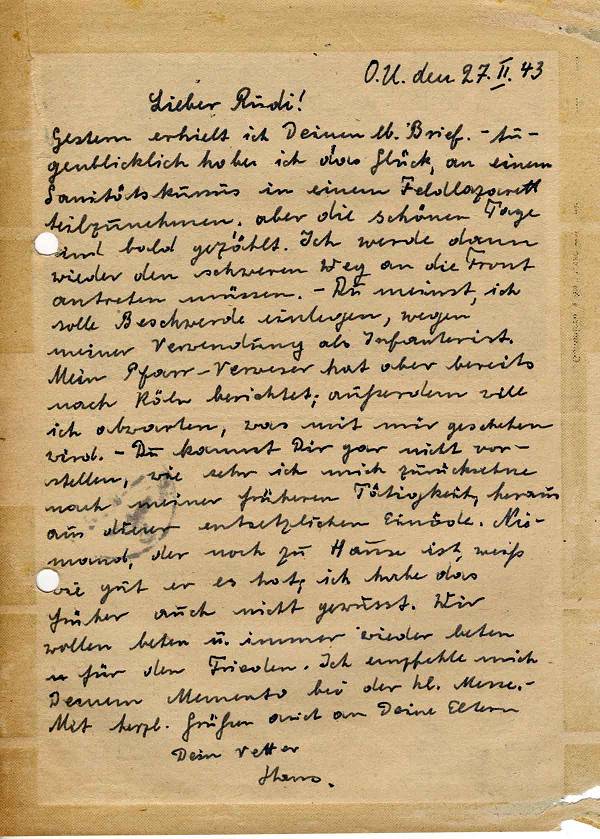 O.U. den 27.II.43
Lieber Rudi!
Gestern erhielt ich Deinen lb. Brief. - Au-
genblicklich habe ich das Glück, an einem
Sanitätskursus in einem Feldlazarett
teilzunehmen, aber die schönen Tage
sind bald gezählt. Ich werde dann
wieder den schweren Weg an die Front
antreten müssen. - Du meinst, ich
solle Beschwerde einlegen, wegen
meiner Verwendung als Infanterist.
Mein Pfarr-Verweser hat aber bereits
nach Köln berichtet; außerdem will
ich abwarten, was mit mir geschehen
wird. - Du kannst Dir gar nicht vor-
stellen, wie sehr ich mich zurücksehne
nach meiner früheren Tätigkeit, heraus
aus dieser entsetzlichen Einöde. Nie-
mand, der noch zu Hause ist, weiß
wie gut er es hat, ich habe das
früher auch nicht gewusst. Wir
wollen beten u. immer wieder beten
u für den Frieden. Ich empfehle mich
Deinem Memento bei der hl. Messe.-
Mit herzl. Grüßen auch an Deine Eltern
Dein Vetter
Hans.